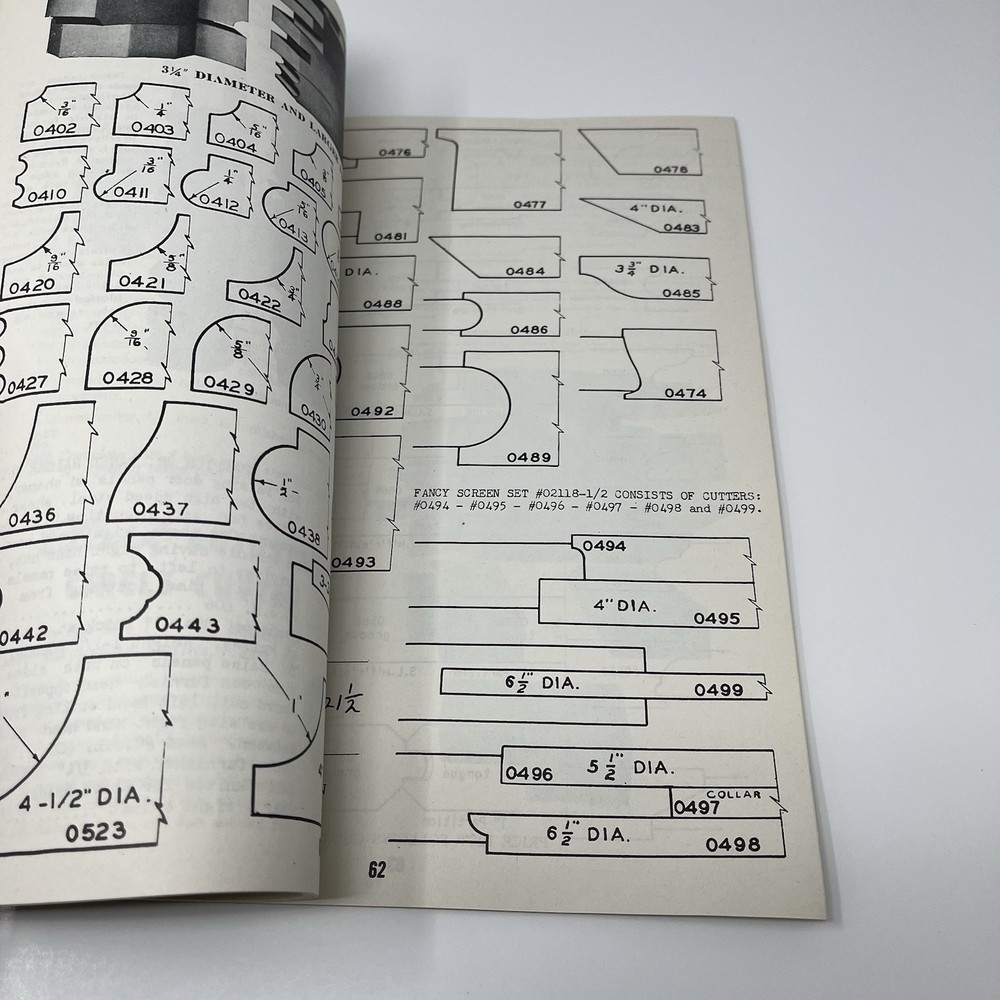 3¼" DIAMETER AND LARGER
3/16" 0402
1/4" 0403
5/16" 0404
0405
0410
3/16" 0411
1/4" 0412
5/16" 0413
9/16" 0420
5/8" 0421
3/4" 0422
0427
9/16" 0428
5/8" 0429
3/4" 0430
0436
0437
1/2" 0438
0442
0443
1"
4-1/2" DIA.
0523
0476
0477
0478
0481
4" DIA.
0483
0484
DIA.
0488
3 3/4" DIA.
0485
0486
0474
0492
0489
0493
FANCY SCREEN SET #02118-1/2 CONSISTS OF CUTTERS:
#0494 - #0495 - #0496 - #0497 - #0498 and #0499.
0494
4" DIA. 0495
6 1/2" DIA. 0499
21 1/2
0496 5 1/2" DIA.
COLLAR
0497
6 1/2" DIA. 0498
62